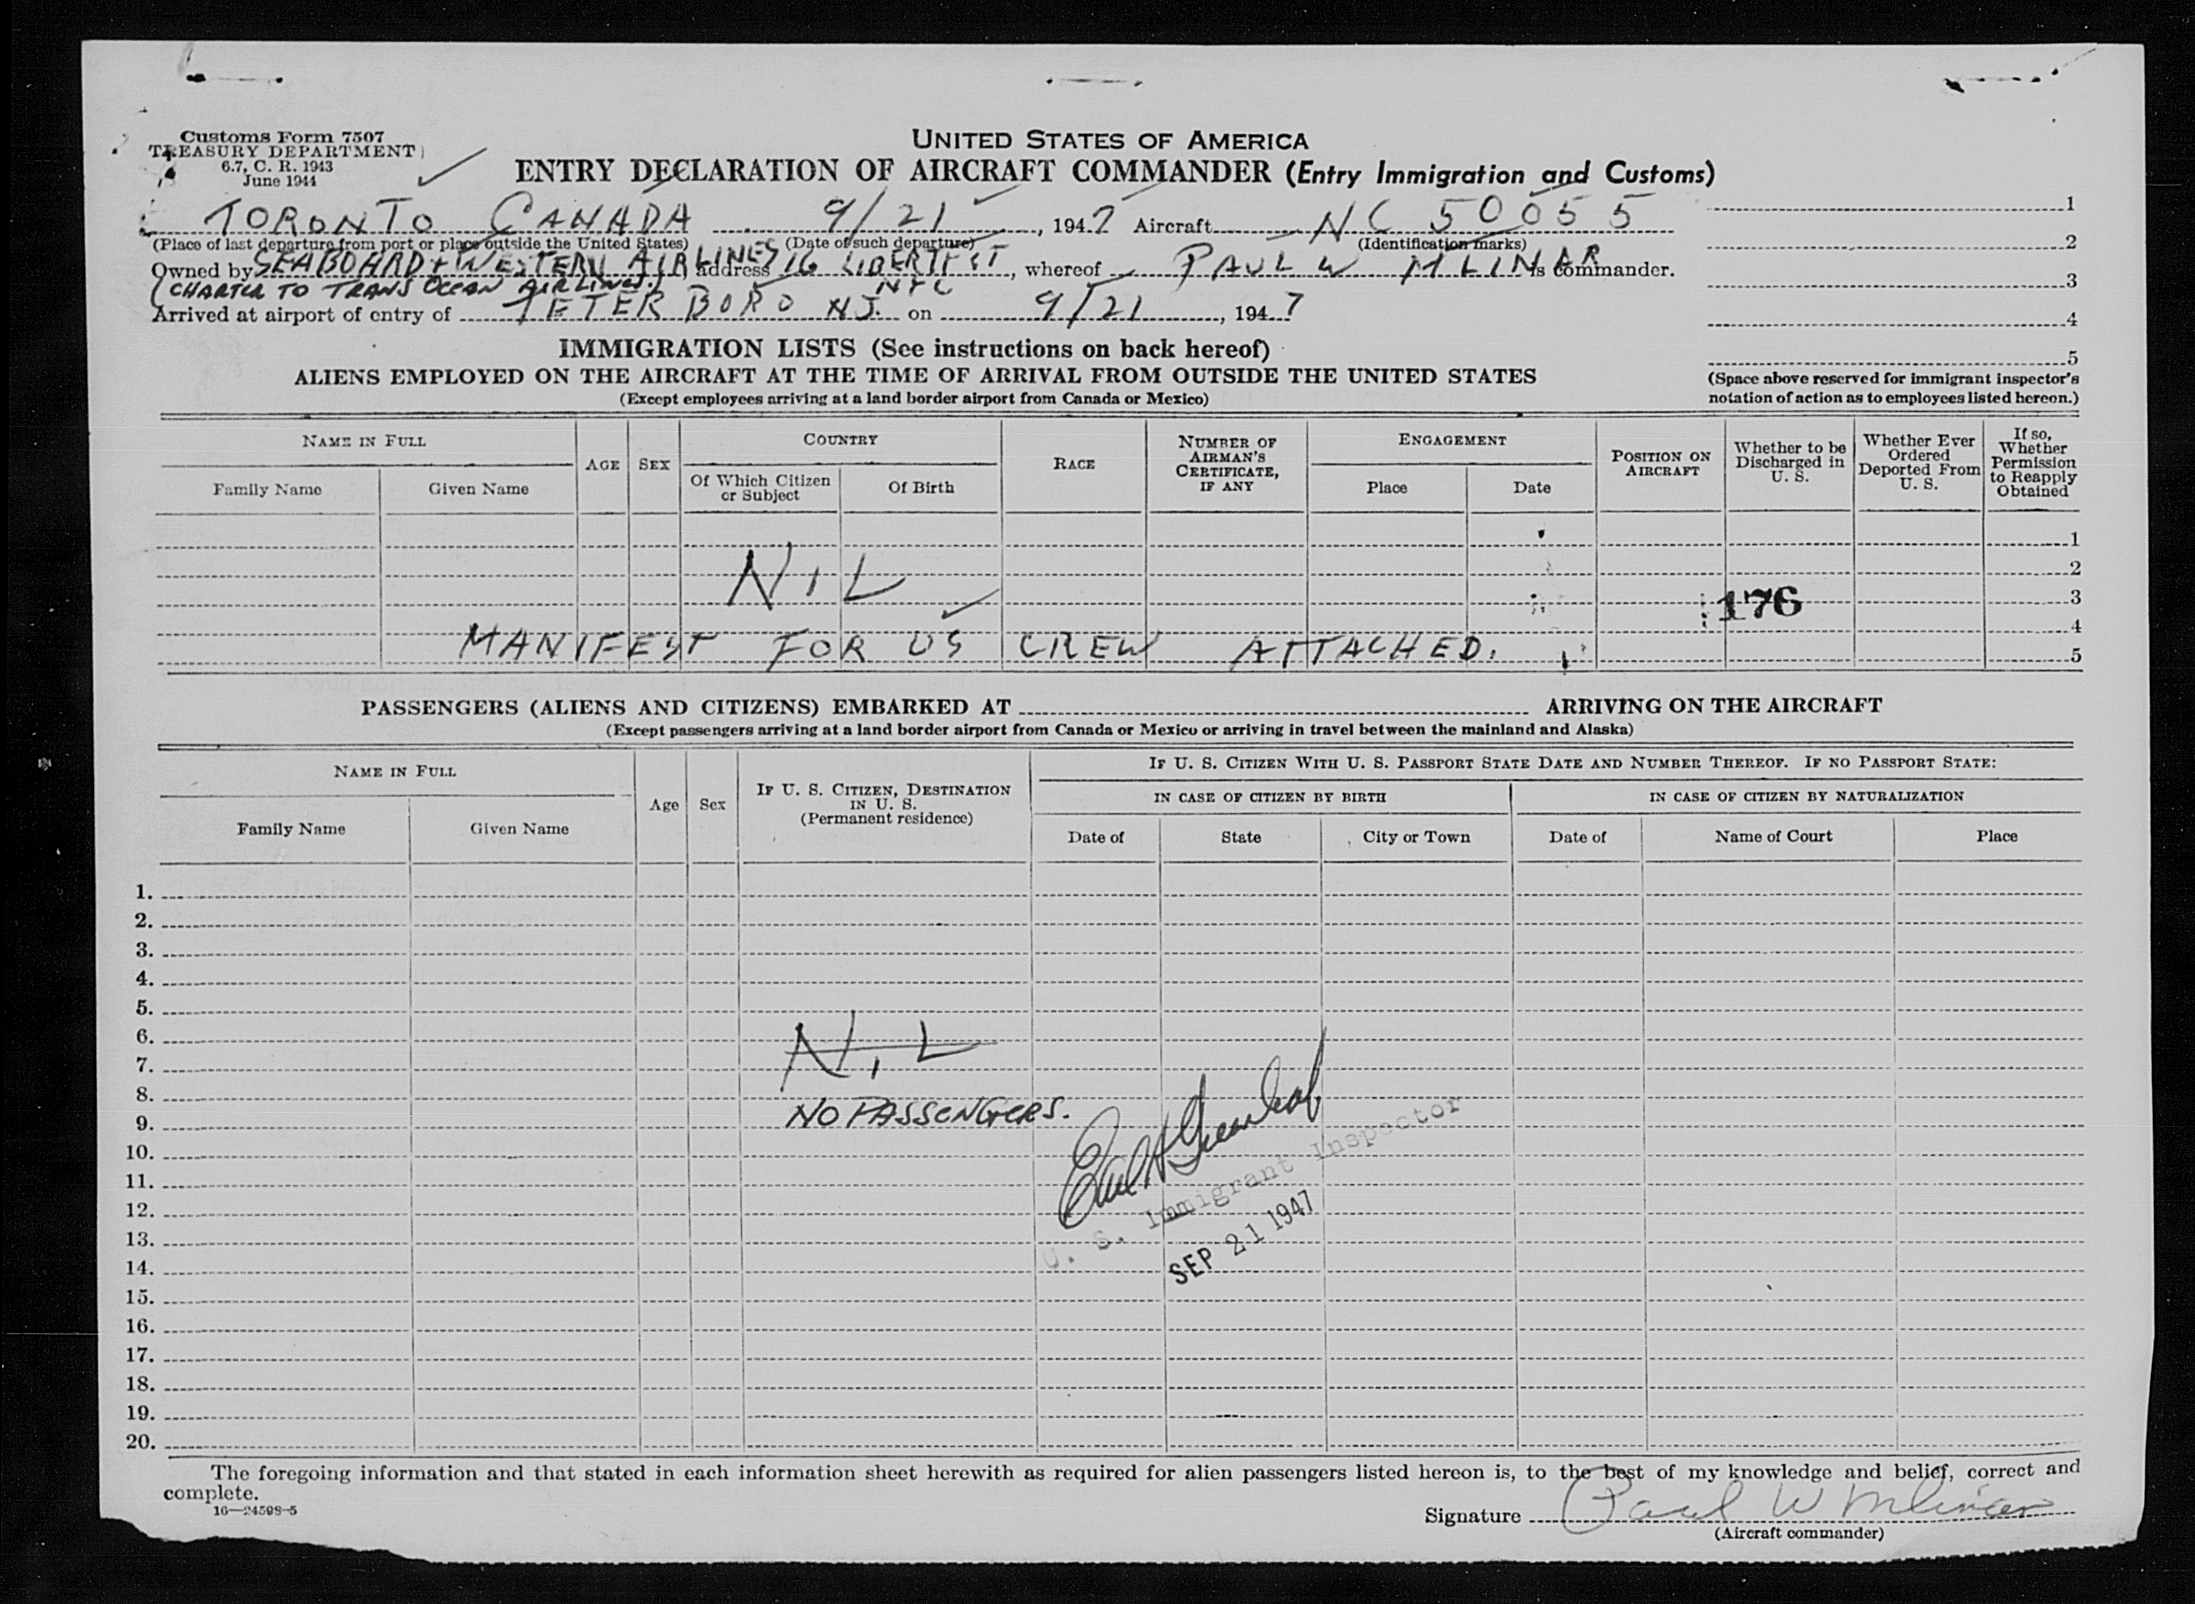 Customs Form 7507
TREASURY DEPARTMENT
6.7, C. R. 1943
June 1944
UNITED STATES OF AMERICA
ENTRY DECLARATION OF AIRCRAFT COMMANDER (Entry Immigration and Customs)
TORONTO CANADA 9/21, 1947 Aircraft NC 50055
(Place of last departure from port or place outside the United States) (Date of such departure) (Identification marks)
Owned by SEABOARD + WESTERN AIRLINES address 16 LIBERTY ST NYC, whereof PAUL W MLINAR is commander.
(CHARTER TO TRANS OCEAN AIRLINES.)
Arrived at airport of entry of TETERBORO NJ. on 9/21, 1947
1
2
3
4
5
(Space above reserved for immigrant inspector's
notation of action as to employees listed hereon.)
IMMIGRATION LISTS (See instructions on back hereof)
ALIENS EMPLOYED ON THE AIRCRAFT AT THE TIME OF ARRIVAL FROM OUTSIDE THE UNITED STATES
(Except employees arriving at a land border airport from Canada or Mexico)
NAME IN FULL
Family Name
Given Name
AGE
SEX
COUNTRY
Of Which Citizen
or Subject
Of Birth
RACE
NUMBER OF
AIRMAN'S
CERTIFICATE,
IF ANY
ENGAGEMENT
Place
Date
POSITION ON
AIRCRAFT
Whether to be
Discharged in
U. S.
Whether Ever
Ordered
Deported From
U. S.
If so,
Whether
Permission
to Reapply
Obtained
1
NIL
2
176
3
4
MANIFEST FOR US CREW ATTACHED.
5
PASSENGERS (ALIENS AND CITIZENS) EMBARKED AT ARRIVING ON THE AIRCRAFT
(Except passengers arriving at a land border airport from Canada or Mexico or arriving in travel between the mainland and Alaska)
NAME IN FULL
Family Name
Given Name
Age
Sex
IF U. S. CITIZEN, DESTINATION
IN U. S.
(Permanent residence)
IF U. S. CITIZEN WITH U. S. PASSPORT STATE DATE AND NUMBER THEREOF. IF NO PASSPORT STATE:
IN CASE OF CITIZEN BY BIRTH
Date of
State
City or Town
IN CASE OF CITIZEN BY NATURALIZATION
Date of
Name of Court
Place
1.
2.
3.
4.
5.
6.
NIL
7.
8.
NO PASSENGERS.
9.
10.
11.
U. S. Immigrant Inspector
12.
13.
SEP 21 1947
14.
15.
16.
17.
18.
19.
20.
The foregoing information and that stated in each information sheet herewith as required for alien passengers listed hereon is, to the best of my knowledge and belief, correct and
complete.
16—24598-5
Signature Paul W Mlinar
(Aircraft commander)